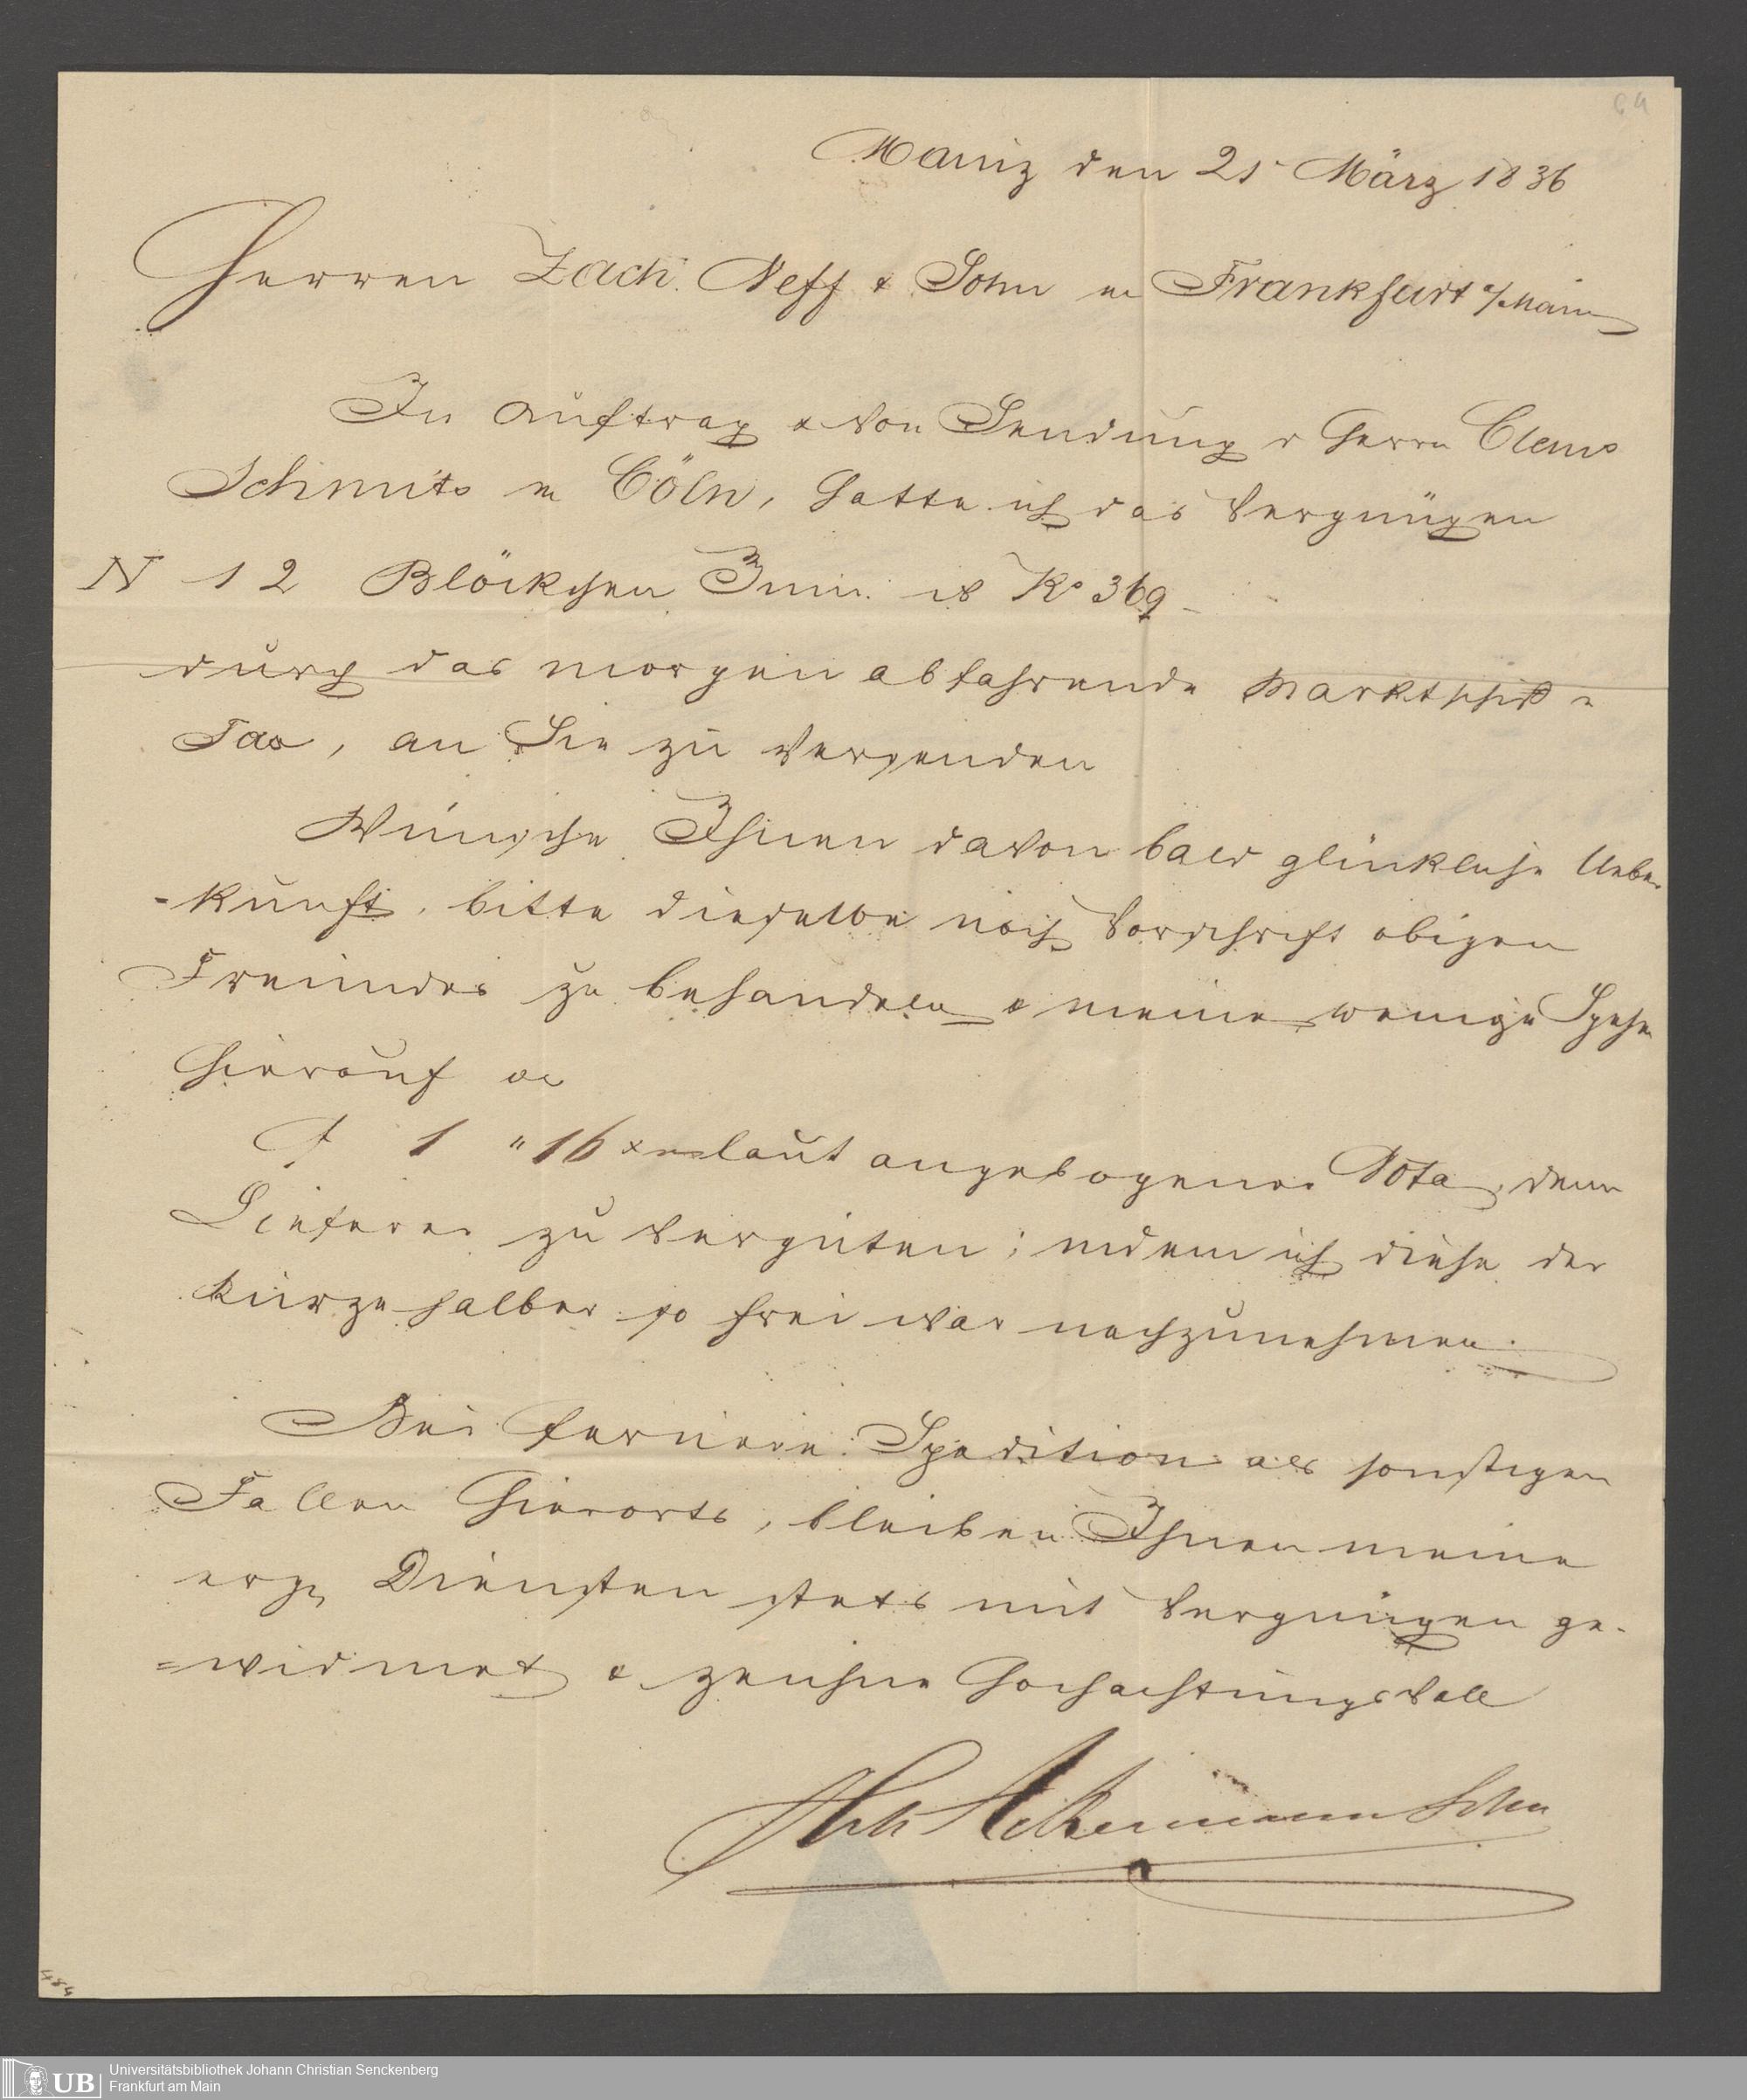 64
Mainz den 21 März 1836
Herren Zach. Neff & Sohn in Frankfurt a/Main
In Auftrag & von Sendung d Herrn Clems
Schmits in Cöln, hatte ich das Vergnügen
N 12 Blöckchen Zinn Ko 369
durch das morgen abfahrende Marktschiff
an Sie zu versenden
Wünsche Ihnen davon bald glückliche Ueber
-kunft, bitte dieselbe nach Vorschrift obigen
Freundes zu behandeln & meine wenige Spese
hierauf
f 1 " 16 xr laut angebogener Nota, dem
Lieferer zu vergüten; indem ich diese der
kürze halber so frei war nachzunehmen.
Bei fernere Spedition als sonstigen
Fällen hierorts, bleiben Ihnen meine
erg. Diensten stets mit Vergnügen ge-
=widmet & zeichne hochachtungsvoll
Ackermann Sohn
484
UB Universitätsbibliothek Johann Christian Senckenberg
Frankfurt am Main